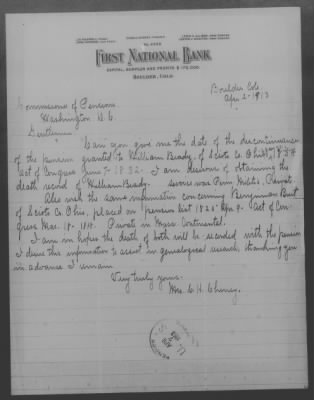 No. 2355
FIRST NATIONAL BANK
CAPITAL, SURPLUS AND PROFITS, $ 175,000.
BOULDER, COLO.
Boulder Colo
Apr 2 - 1913
Commissioner of Pensions
Washington D. C.
Gentlemen
Can you give me the date of the discontinuance
of the pension granted to William Beady, of Scioto Co Ohio
Act of Congress June 7- 1832. I am desirous of obtaining the
death record of William Beady. Service was Penn Militia, Private.
Also wish the same information concerning Benjamin Burt
of Scioto Co Ohio, placed on pension list 1820 Apr 9- Act of Con-
gress Mar. 18- 1818. Private in Mass. Continental.
I am in hopes the death of both will be recorded with the pension
I desire this information to assist in genealogical research, thanking you
in advance I remain
Very truly yours-
Mrs. C. H. Cheney.